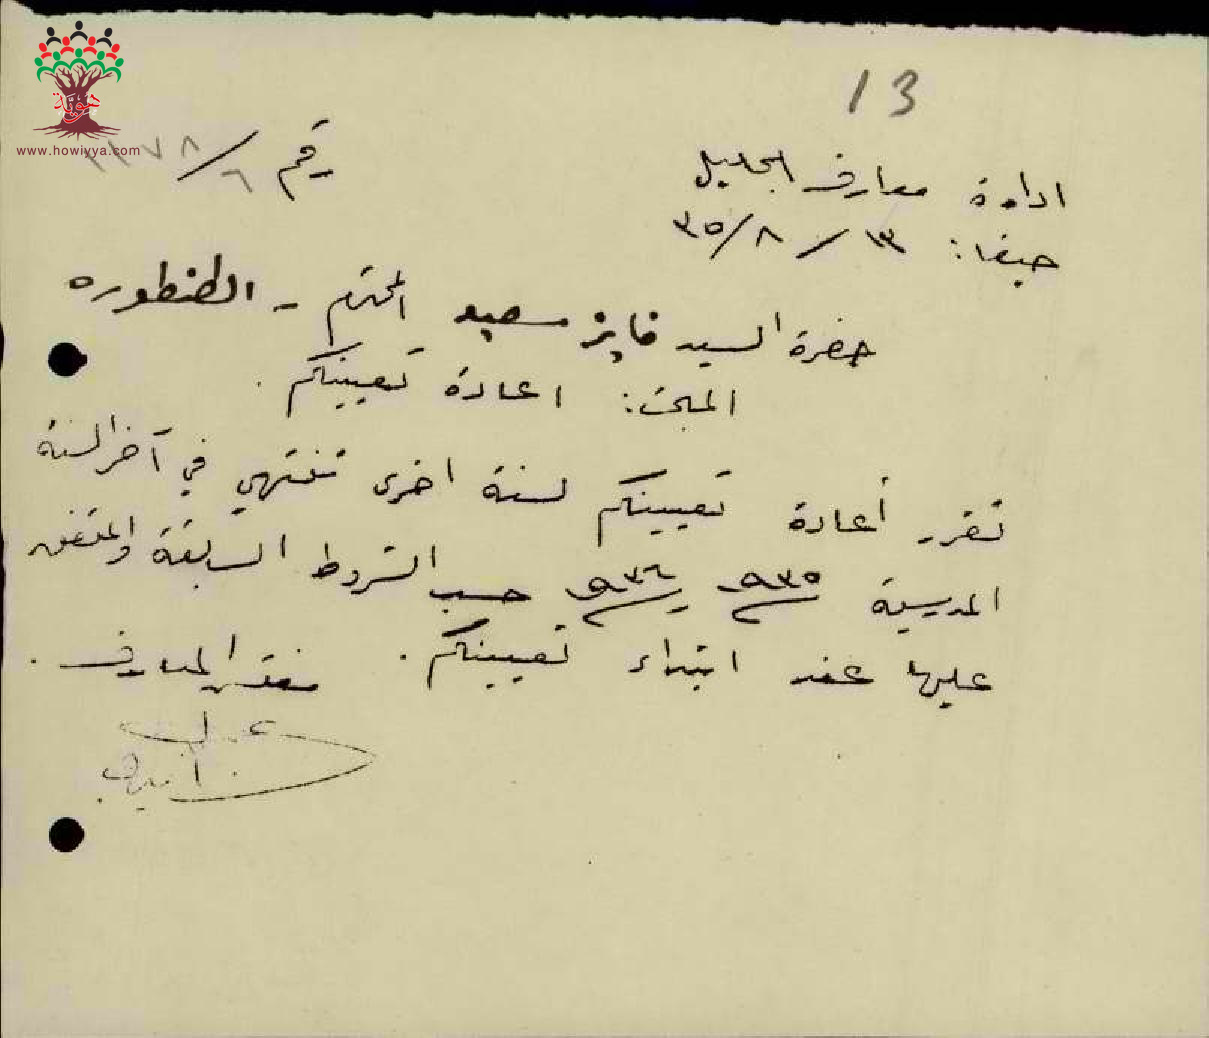 13
ادارة معارف الجليل
رقم ٦/
www.howiyya.com
حيفا: ١٣/٨/٣٥
حضرة السيد فايز سعيد المحترم - الطنطوره
المبحث: اعادة تعيينكم.
تقرر أعادة تعيينكم لسنة اخرى تنتهي في آخر السنة
المدرسية ٩٣٥ - ٩٣٦ حسب الشروط السابقة والمتفق
عليها عند ابتداء تعيينكم. مفتش المعارف.